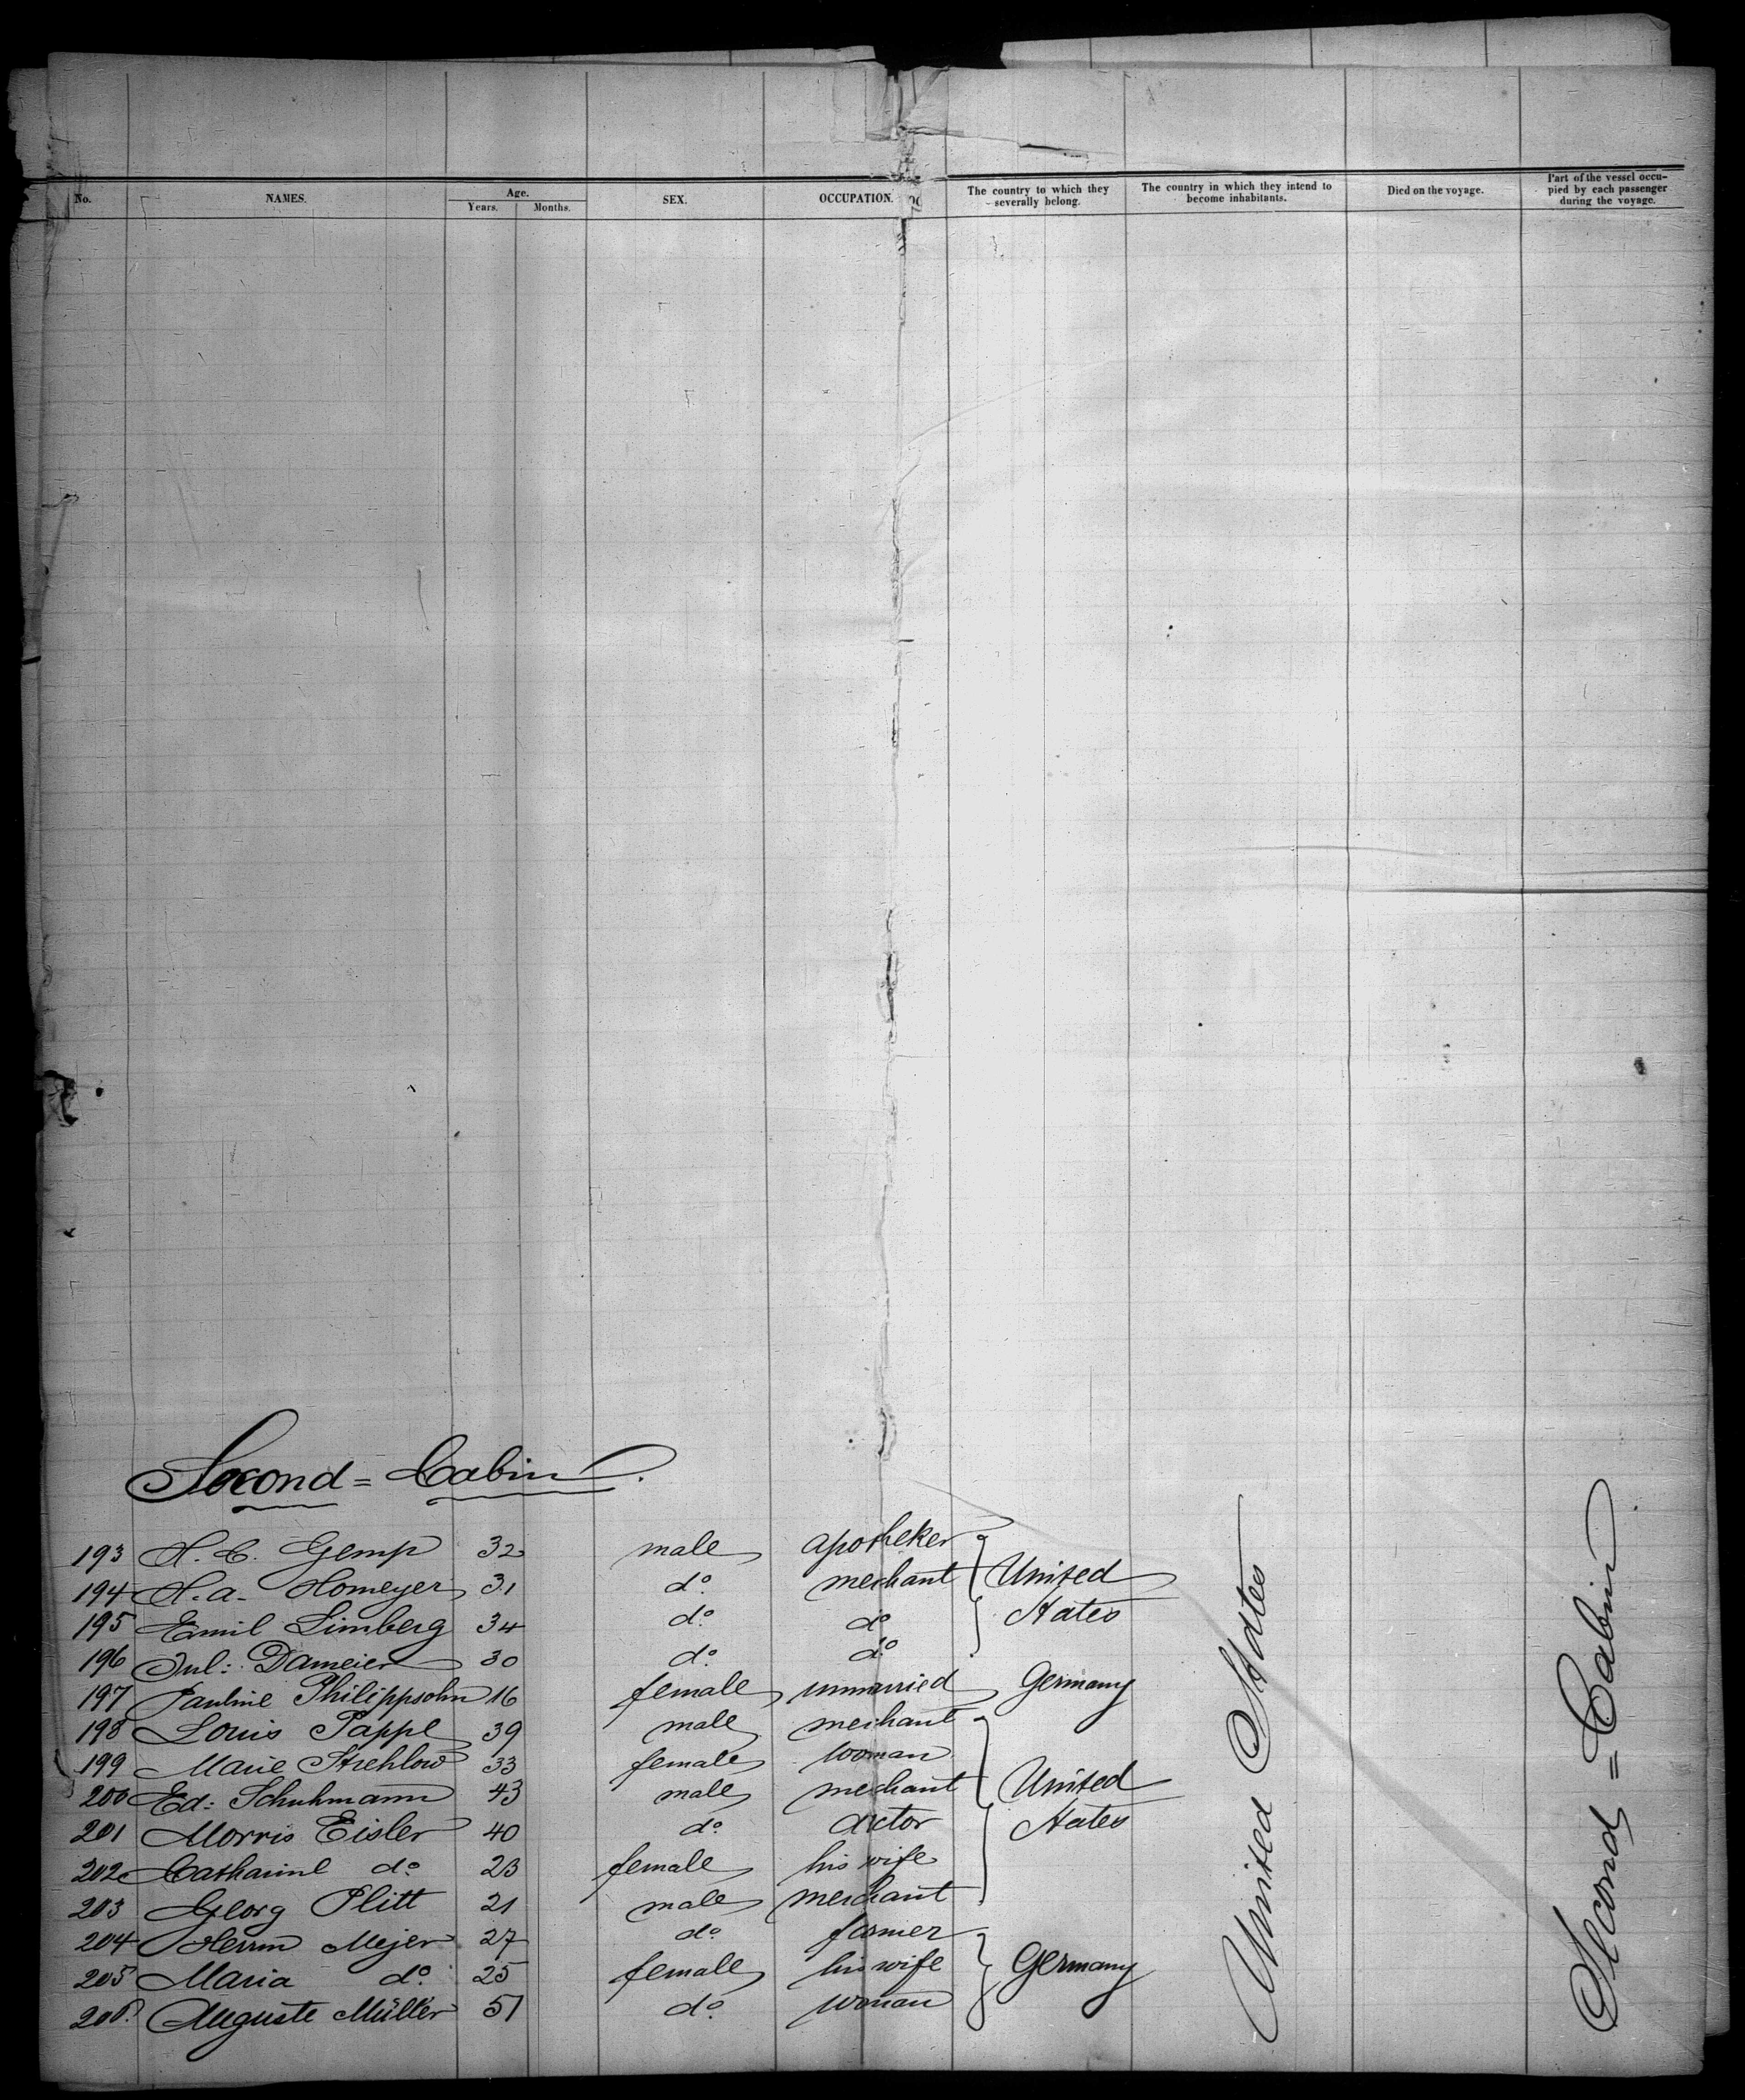 No. NAMES. Age. Years. Months. SEX. OCCUPATION. The country to which they severally belong. The country in which they intend to become inhabitants. Died on the voyage. Part of the vessel occupied by each passenger during the voyage.
Second = Cabin.
193 H. C. Gemp 32 male apotheker
194 H. a. Homeyer 31 do. merchant United
195 Emil Limberg 34 do. do States
196 Jul: Dameier 30 do. do
197 Pauline Philippsohn 16 female unmarried Germany
198 Louis Pappe 39 male merchant
199 Marie Strehlow 33 female woman
200 Ed: Schuhmann 43 male merchant United
201 Morris Eisler 40 do. actor States
202 Catharine do. 23 female his wife
203 Georg Plitt 21 male merchant
204 Herrm Mejer 27 do. farmer
205 Maria do. 25 female his wife Germany
206. Auguste Müller 51 do. woman
United States
Second = Cabin